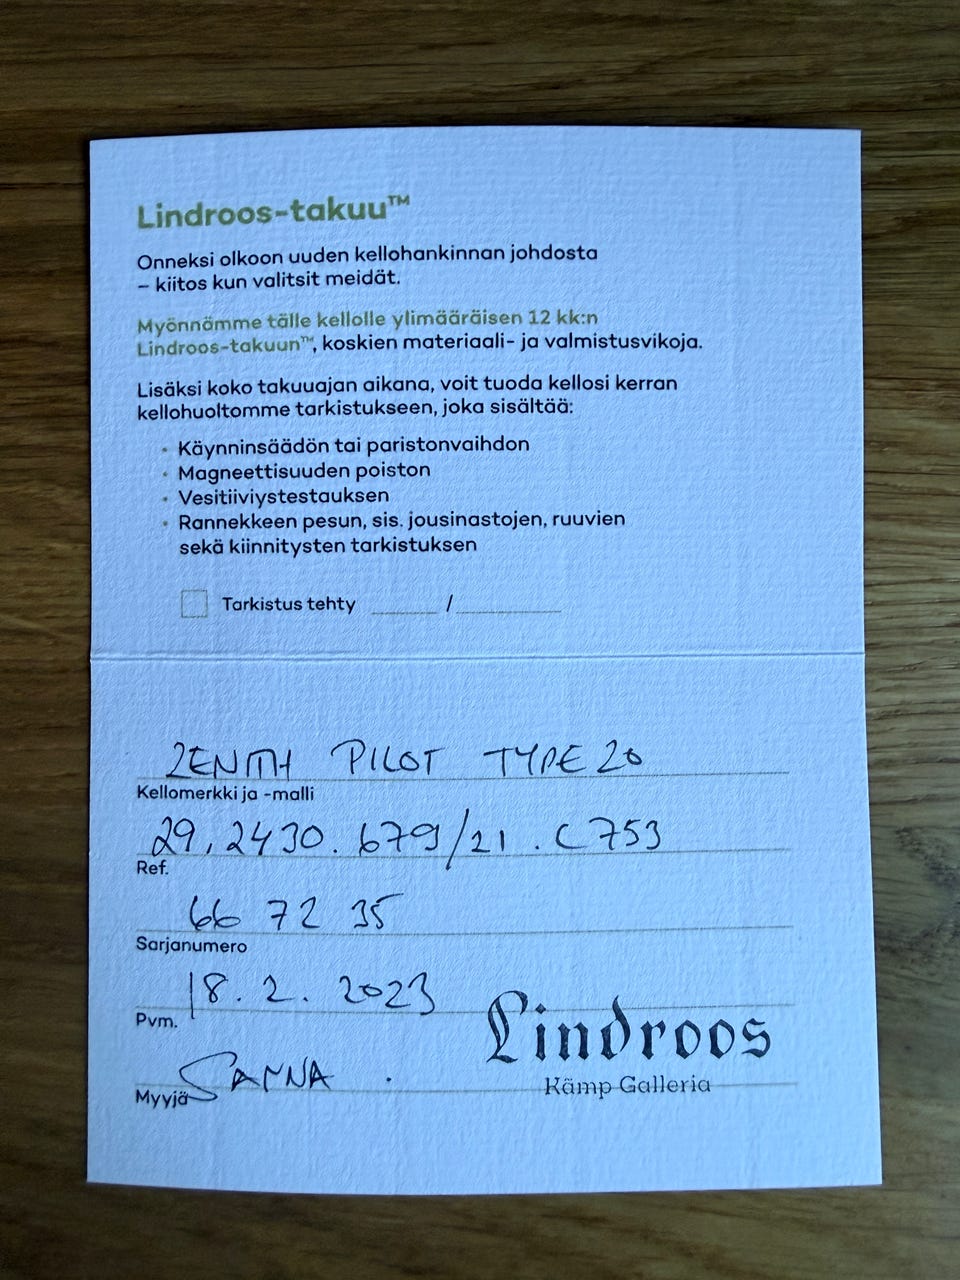 Lindroos-takuu™
Onneksi olkoon uuden kellohankinnan johdosta
– kiitos kun valitsit meidät.
Myönnämme tälle kellolle ylimääräisen 12 kk:n
Lindroos-takuun™, koskien materiaali- ja valmistusvikoja.
Lisäksi koko takuuajan aikana, voit tuoda kellosi kerran
kellohuoltomme tarkistukseen, joka sisältää:
• Käynninsäädön tai paristonvaihdon
• Magneettisuuden poiston
• Vesitiiviystestauksen
• Rannekkeen pesun, sis. jousinastojen, ruuvien
sekä kiinnitysten tarkistuksen
Tarkistus tehty ______ / ________
ZENITH PILOT TYPE 20
Kellomerkki ja -malli
29.2430.679/21.C753
Ref.
66 72 35
Sarjanumero
18.2.2023
Pvm.
SANNA
Myyjä
Lindroos
Kämp Galleria